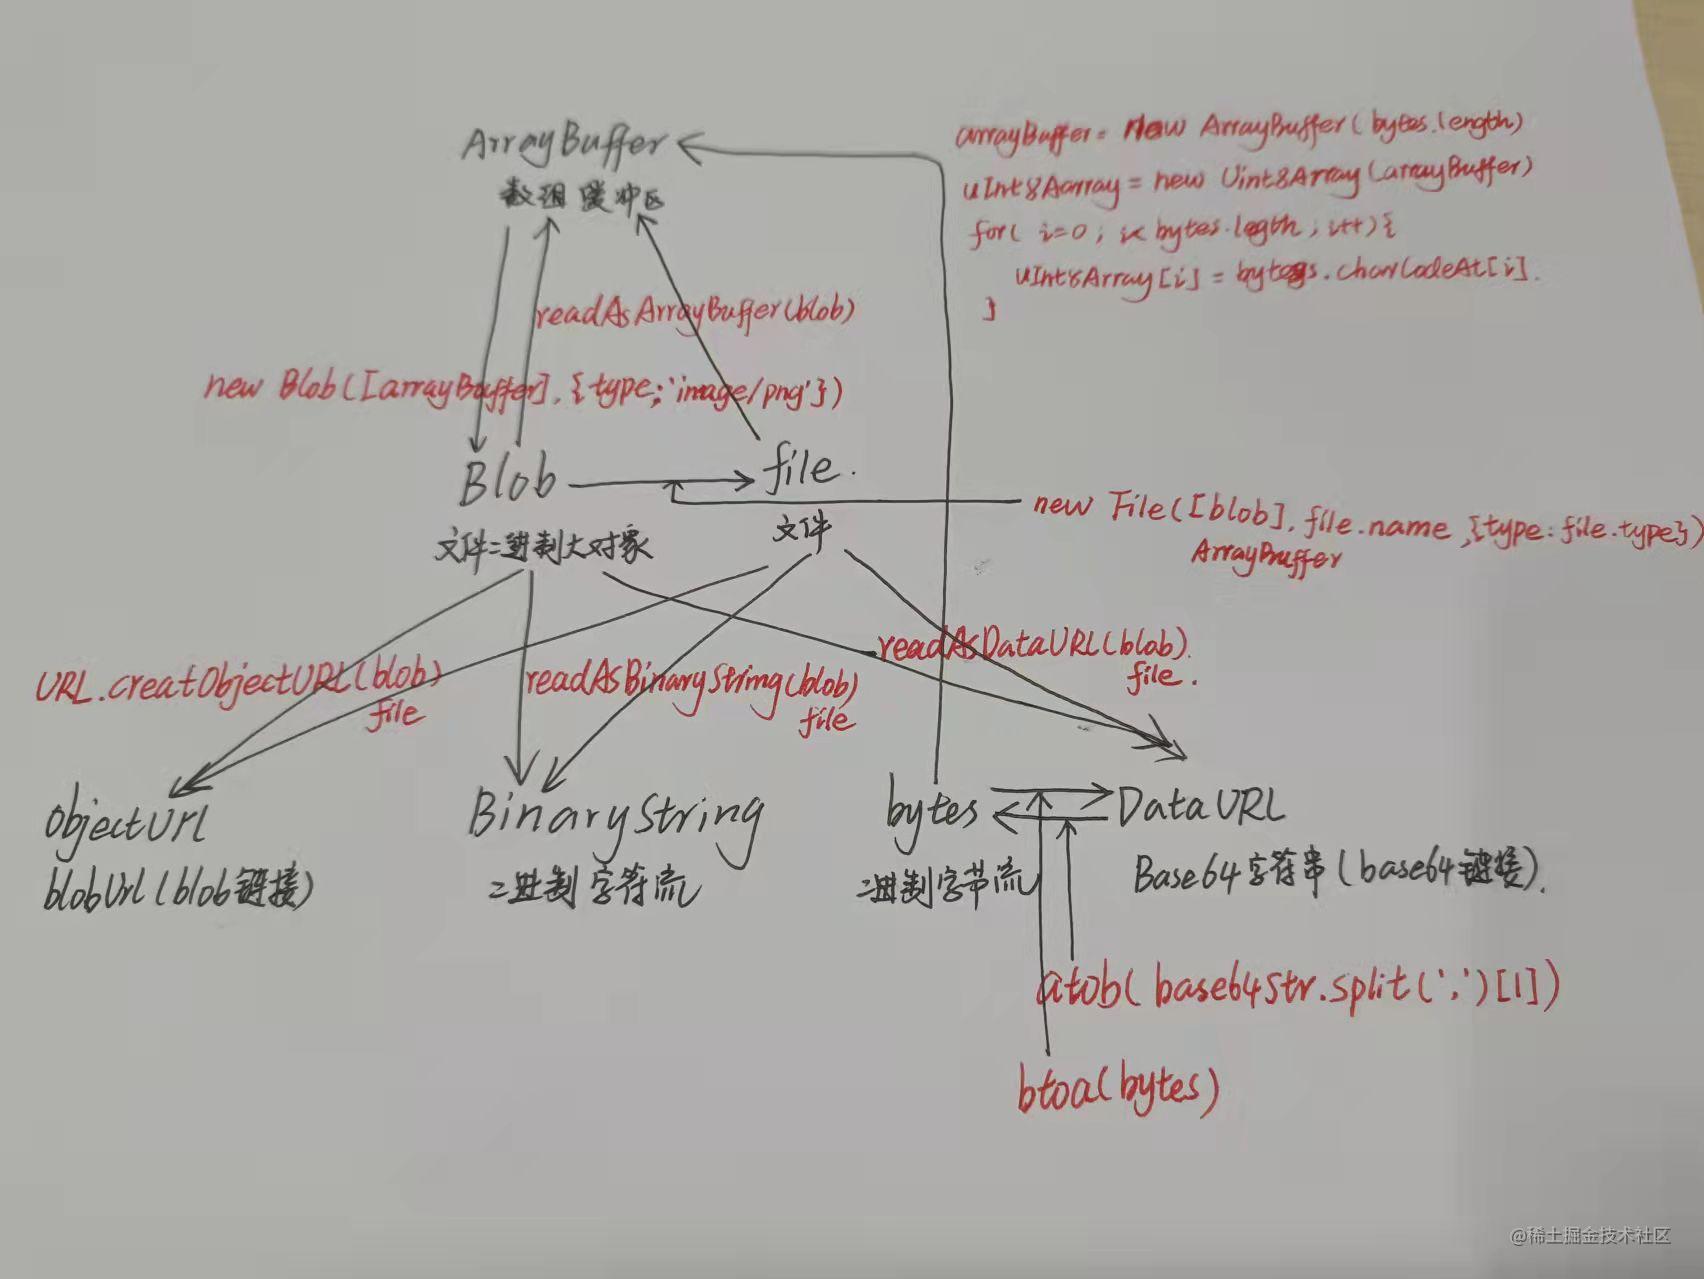 ArrayBuffer
数组缓冲区
arrayBuffer = new ArrayBuffer(bytes.length)
uInt8Aarray = new Uint8Array(arrayBuffer)
for( i=0 ; i< bytes.legth ; i++){
uInt8Array[i] = bytes.charCodeAt[i].
}
readAsArrayBuffer(blob)
new Blob([arrayBuffer], {type;'image/png'})
Blob
file.
文件二进制大对象
文件
new File([blob], file.name ,{type: file.type})
ArrayBuffer
URL.creatObjectURL(blob)
file
readAsBinaryString(blob)
file
readAsDataURL(blob).
file.
ObjectUrl
blobUrl(blob链接)
BinaryString
二进制字符流
bytes
二进制字节流
DataURL
Base64字符串(base64链接).
atob(base64Str.split(',')[1])
btoa(bytes)
@稀土掘金技术社区